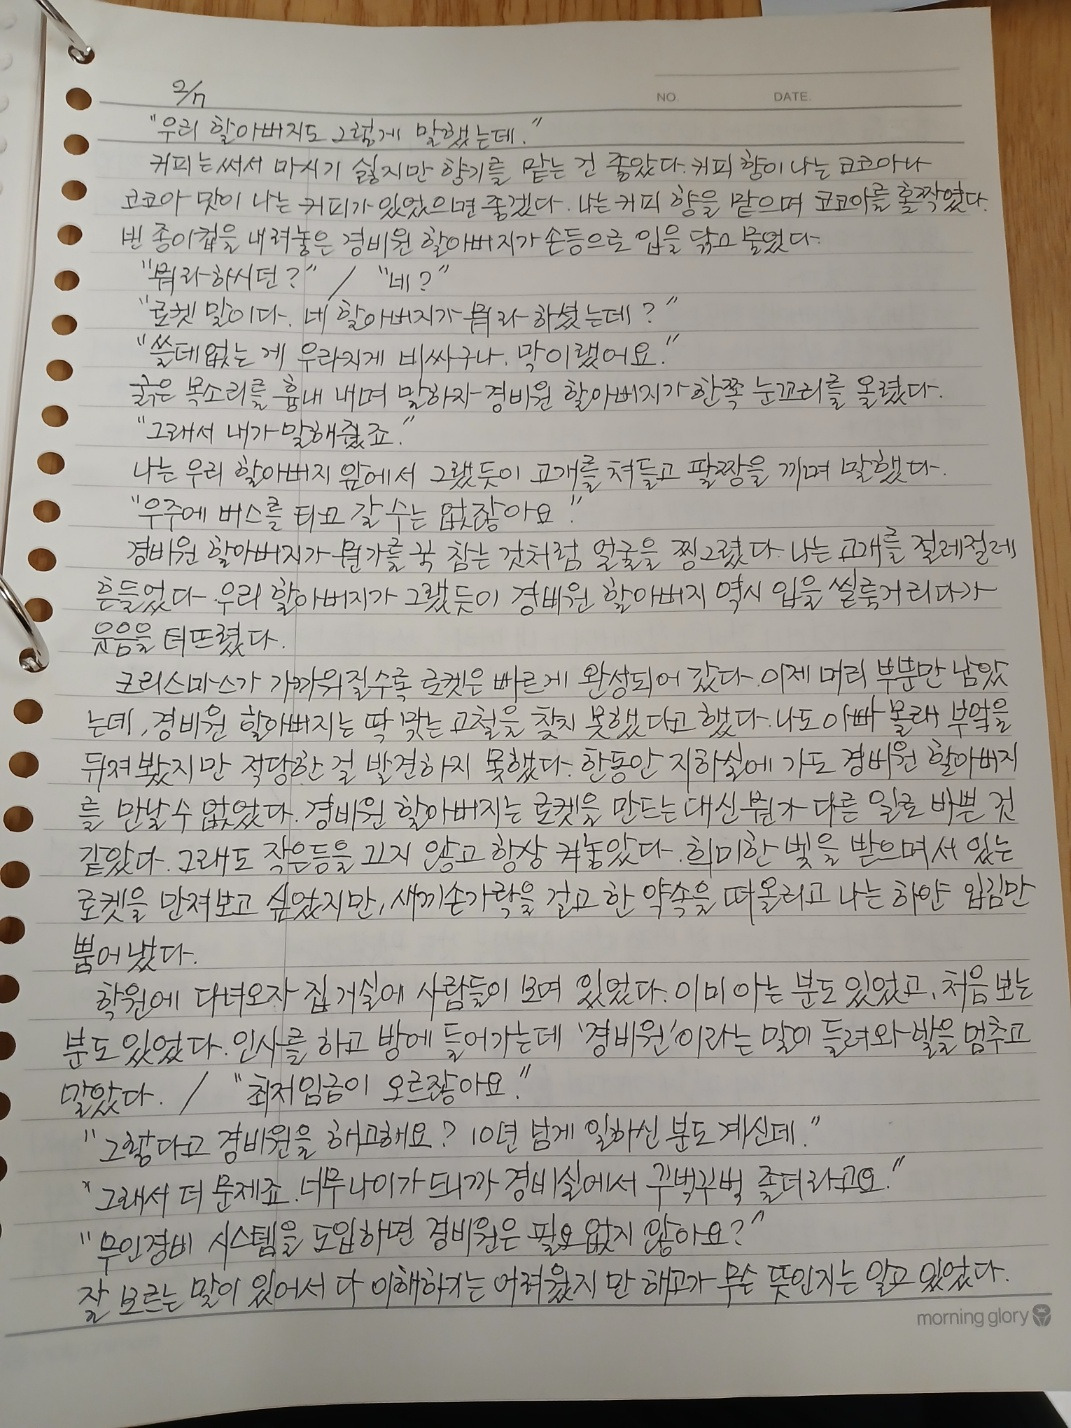 2/7
NO. DATE.
"우리 할아버지도 그렇게 말했는데."
커피는 써서 마시기 싫지만 향기를 맡는 건 좋았다. 커피 향이 나는 코코아나
코코아 맛이 나는 커피가 있었으면 좋겠다. 나는 커피 향을 맡으며 코코아를 홀짝였다.
빈 종이컵을 내려놓은 경비원 할아버지가 손등으로 입을 닦고 물었다.
"뭐라 하시던?" / "네?"
"로켓 말이다. 네 할아버지가 뭐라 하셨는데?"
"쓸데없는 게 우라지게 비싸구나. 막 이랬어요."
굵은 목소리를 흉내 내며 말하자 경비원 할아버지가 한쪽 눈꼬리를 올렸다.
"그래서 내가 말해줬죠."
나는 우리 할아버지 앞에서 그랬듯이 고개를 쳐들고 팔짱을 끼며 말했다.
"우주에 버스를 타고 갈 수는 없잖아요."
경비원 할아버지가 뭔가를 꾹 참는 것처럼 얼굴을 찡그렸다. 나는 고개를 절레절레
흔들었다. 우리 할아버지가 그랬듯이 경비원 할아버지 역시 입을 씰룩거리다가
웃음을 터뜨렸다.
크리스마스가 가까워질수록 로켓은 빠르게 완성되어 갔다. 이제 머리 부분만 남았
는데, 경비원 할아버지는 딱 맞는 고철을 찾지 못했다고 했다. 나도 아빠 몰래 부엌을
뒤져 봤지만 적당한 걸 발견하지 못했다. 한동안 지하실에 가도 경비원 할아버지
를 만날 수 없었다. 경비원 할아버지는 로켓을 만드는 대신 뭔가 다른 일로 바쁜 것
같았다. 그래도 작은 등을 끄지 않고 항상 켜놓았다. 희미한 빛을 받으며 서 있는
로켓을 만져보고 싶었지만, 새끼손가락을 걸고 한 약속을 떠올리고 나는 하얀 입김만
뿜어 냈다.
학원에 다녀오자 집 거실에 사람들이 모여 있었다. 이미 아는 분도 있었고, 처음 보는
분도 있었다. 인사를 하고 방에 들어가는데 '경비원'이라는 말이 들려와 발을 멈추고
말았다. / "최저임금이 오르잖아요."
"그렇다고 경비원을 해고해요? 10년 넘게 일하신 분도 계신데."
"그래서 더 문제죠. 너무 나이가 드니까 경비실에서 꾸벅꾸벅 졸더라고요."
"무인경비 시스템을 도입하면 경비원은 필요 없지 않아요?"
잘 모르는 말이 있어서 다 이해하기는 어려웠지만 해고가 무슨 뜻인지는 알고 있었다.
morning glory